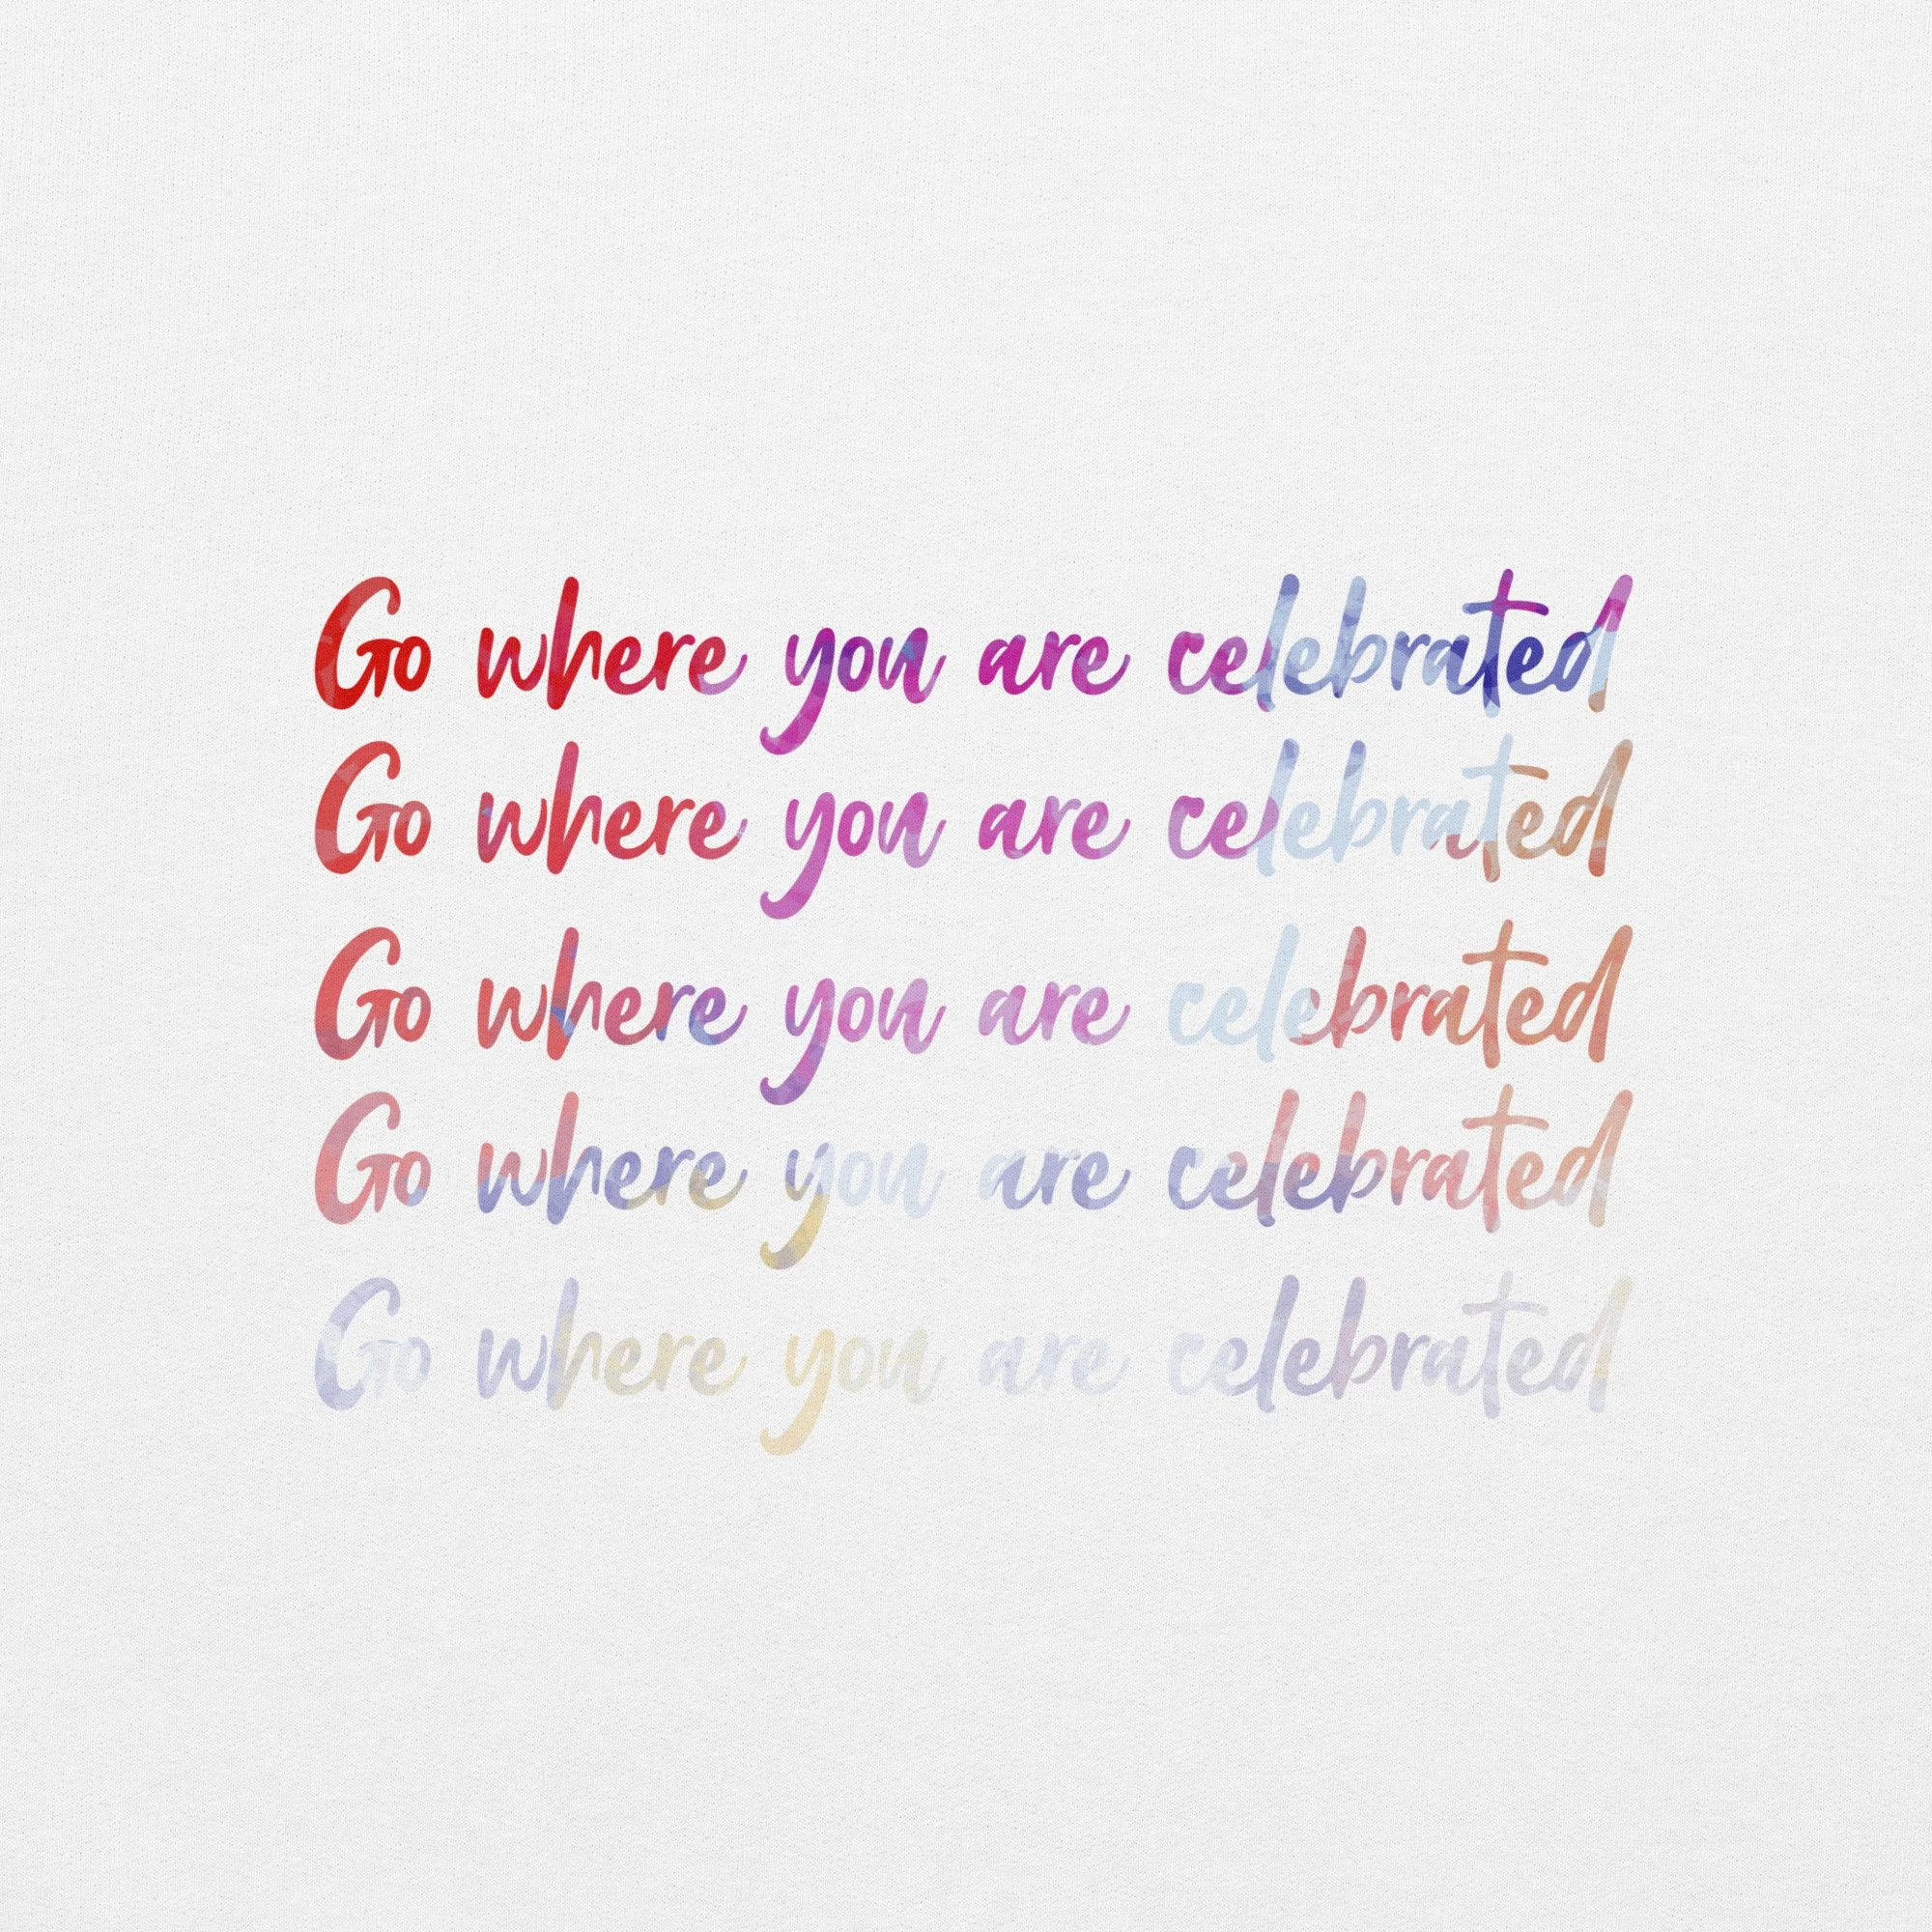 Go where you are celebrated
Go where you are celebrated
Go where you are celebrated
Go where you are celebrated
Go where you are celebrated